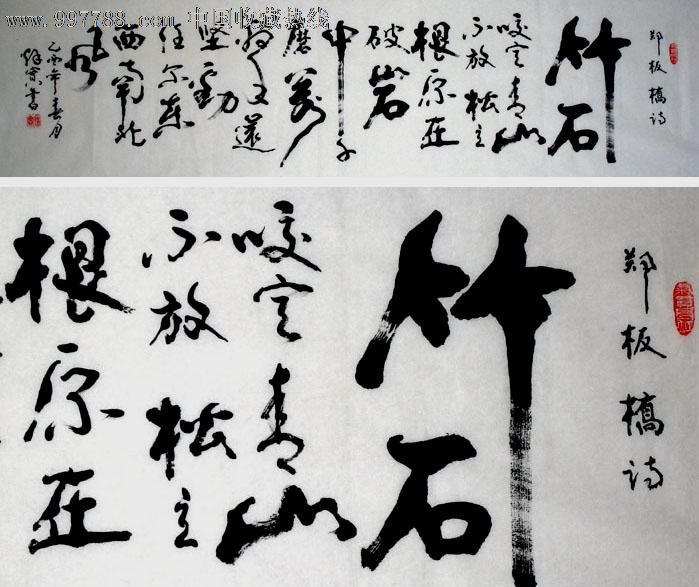 www.997788.com 中国收藏热线
郑板橋诗
竹石
咬定青山
不放松立
根原在
破岩
中千
磨萬
還
坚劲
任尔東
西南北
風
乙酉年春月
郑板橋诗
竹石
咬定青山
不放松立
根原在